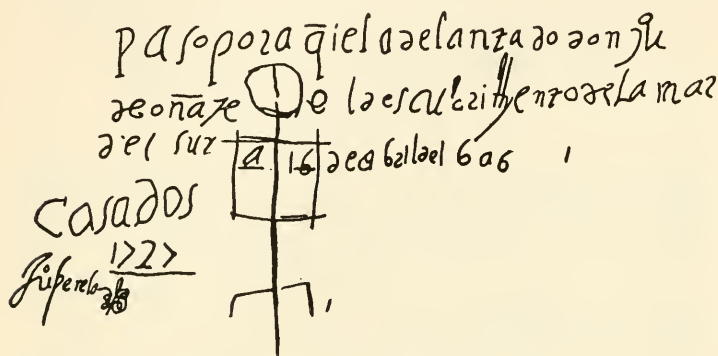 paso pora q̄i el adelantado don ju
de oñate el descubrimiento de la mar
del sur a 16 de abril del 606
Casados
1727